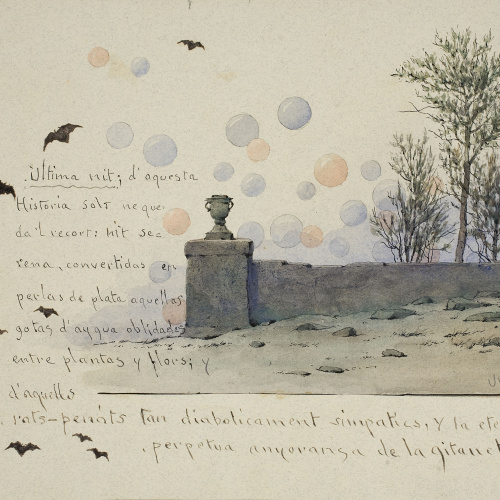 Ultima nit; d'aquesta
Historia sols ne que-
da'l recort: nit se-
rena, convertidas en
perlas de plata aquellas
gotas d'aygua oblidadas
entre plantas y flors; y
d'aquells
rats-penats tan diabolicament simpatics, y la
perpetua anyoransa de la